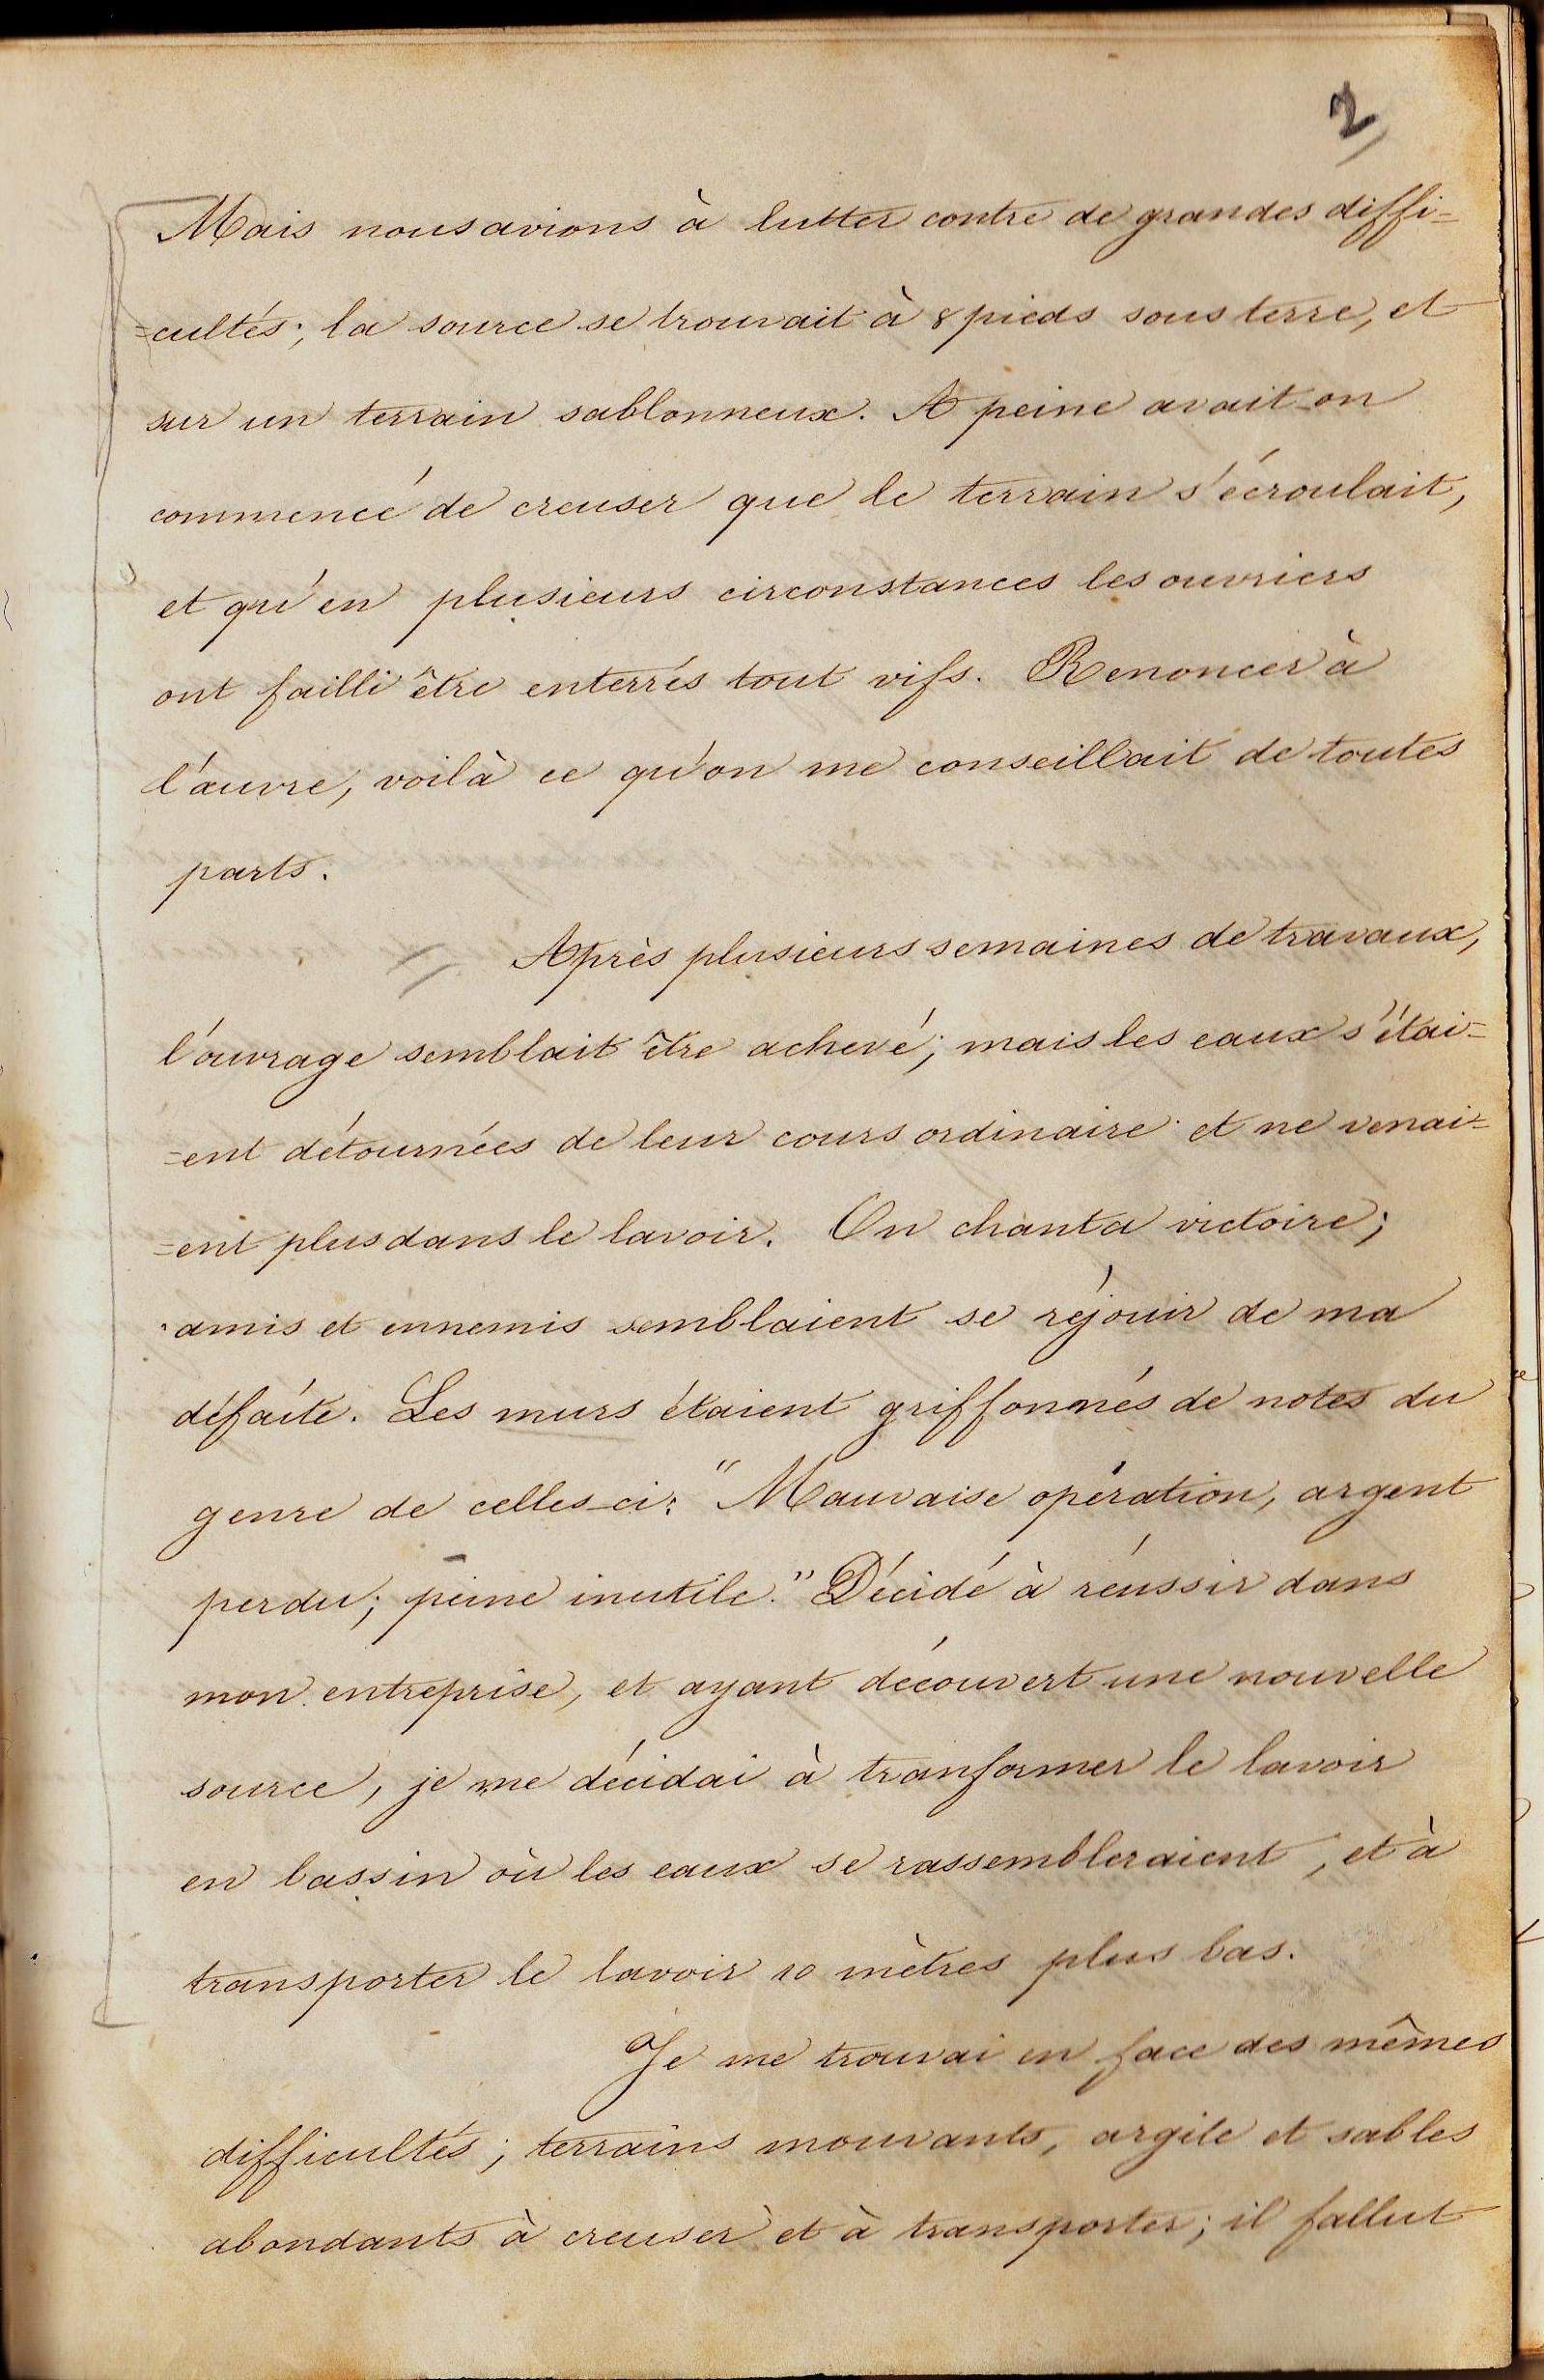 2
Mais nous avions à lutter contre de grandes diffi-
=cultés; la source se trouvait à 8 pieds sous terre, et
sur un terrain sablonneux. A peine avait-on
commencé de creuser que le terrain s'écroulait,
et qu'en plusieurs circonstances les ouvriers
ont failli être enterrés tout vifs. Renoncer à
l'œuvre, voilà ce qu'on me conseillait de toutes
parts.
Après plusieurs semaines de travaux,
l'ouvrage semblait être achevé; mais les eaux s'étai=
=ent détournées de leur cours ordinaire et ne venai=
=ent plus dans le lavoir. On chanta victoire;
amis et ennemis semblaient se réjouir de ma
défaite. Les murs étaient griffonnés de notes du
genre de celles-ci: "Mauvaise opération, argent
perdu; peine inutile." Décidé à réussir dans
mon entreprise, et ayant découvert une nouvelle
source, je me décidai à tranformer le lavoir
en bassin où les eaux se rassembleraient, et à
transporter le lavoir 10 mètres plus bas.
Je me trouvai en face des mêmes
difficultés; terrains mouvants, argile et sables
abondants à creuser et à transporter; il fallut